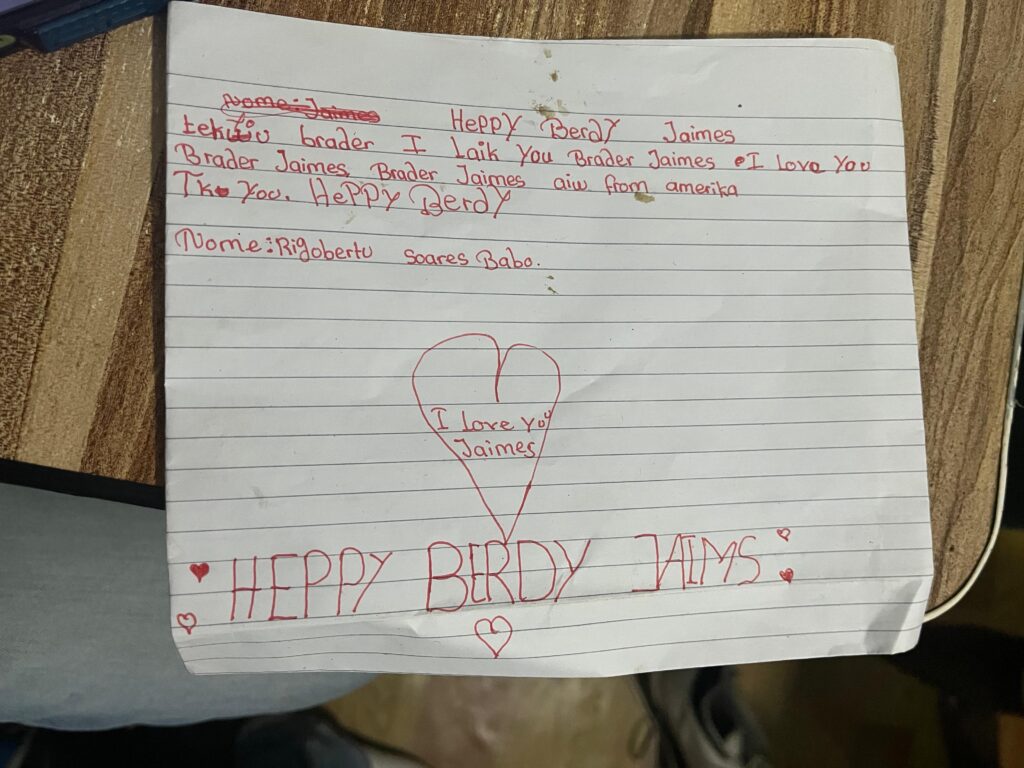 Nome: Jaimes
Heppy Berdy Jaimes
brader I Laik You Brader Jaimes I Love You
Brader Jaimes, Brader Jaimes aiw from amerika
You. HePPY Berdy
Nome: Rigoberto Soares Babo.
I Love You
Jaimes
HEPPY BERDY JAIMS